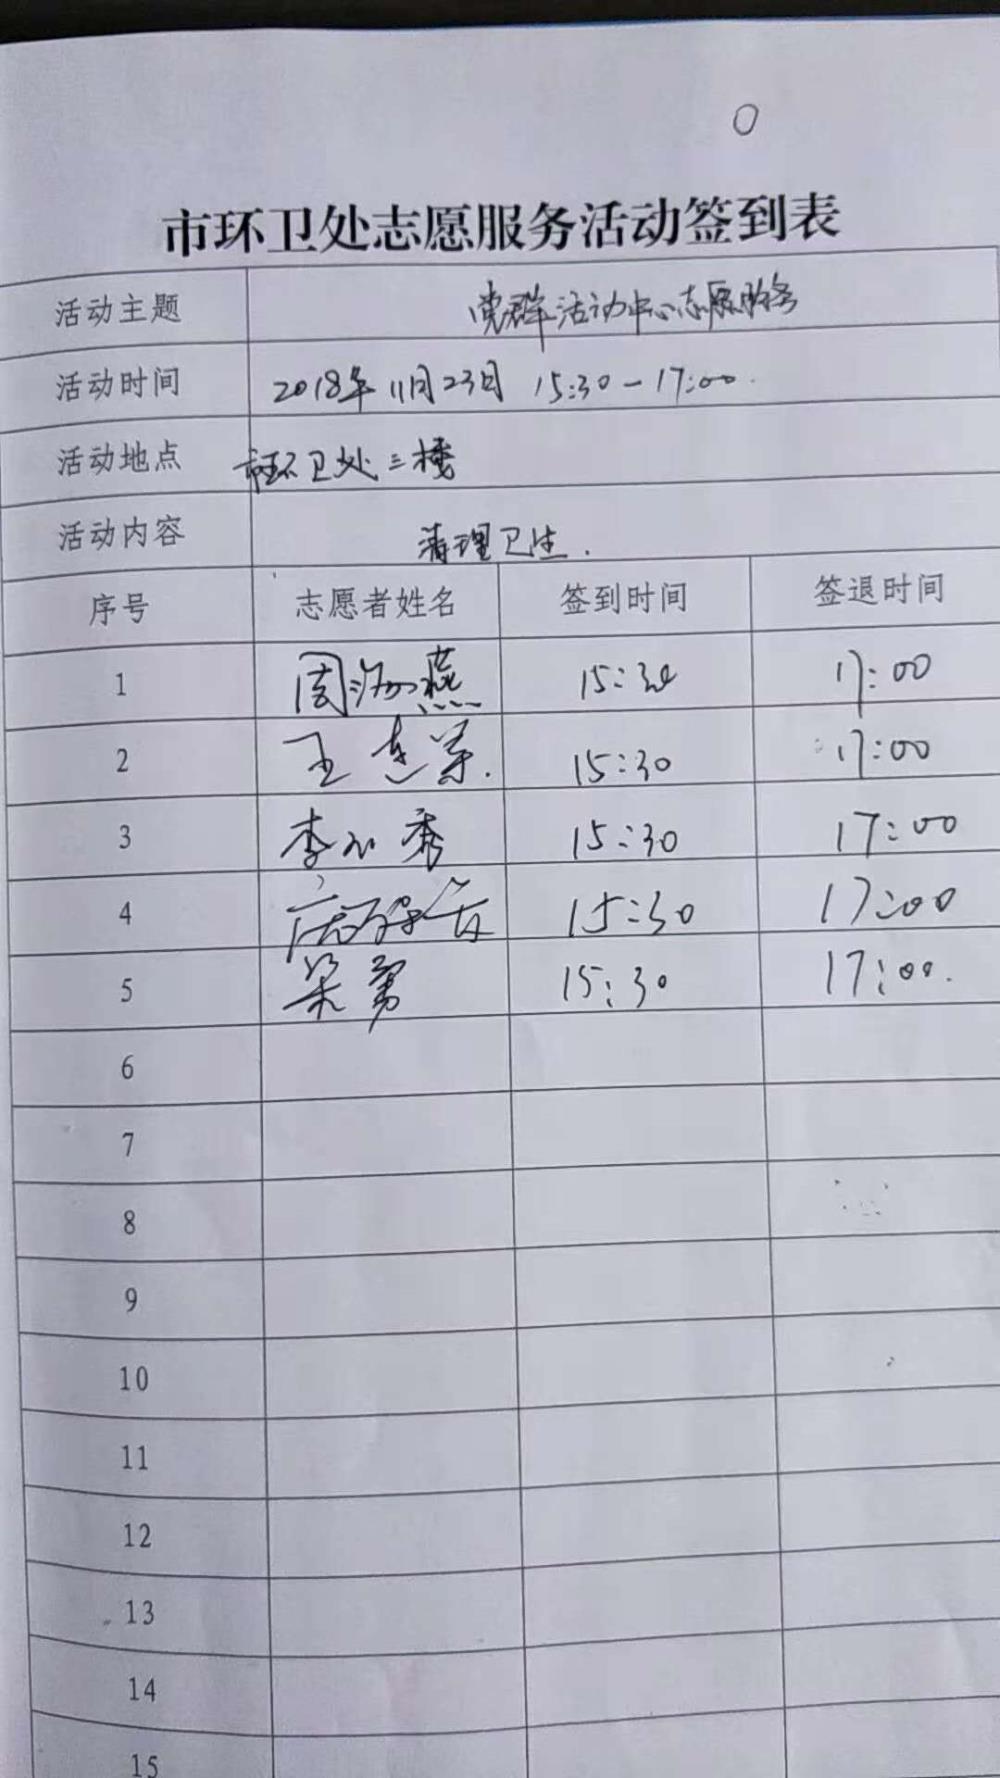 市环卫处志愿服务活动签到表
活动主题 党群活动中心志愿服务
活动时间 2018年11月23日 15:30-17:00.
活动地点 市环卫处三楼
活动内容 清理卫生.
序号 志愿者姓名 签到时间 签退时间
1 周海燕 15:30 17:00
2 王 15:30 17:00
3 李 秀 15:30 17:00
4 15:30 17:00
5 梁勇 15:30 17:00.
6
7
8
9
10
11
12
13
14
15